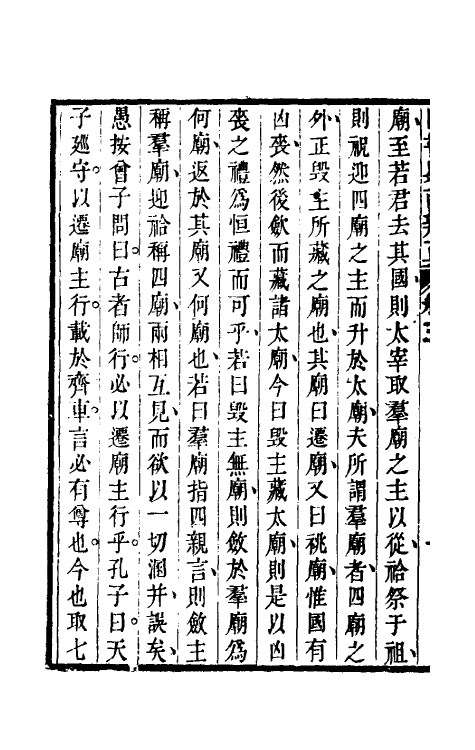 廟至若君去其國則太宰取羣廟之主以從祫祭于祖
則祝迎四廟之主而升於太廟夫所謂羣廟者四廟之
外正毀主所藏之廟也其廟曰遷廟又曰祧廟惟國有
凶喪然後斂而藏諸太廟今曰毀主藏太廟則是以凶
喪之禮爲恒禮而可乎若曰毀主無廟則斂於羣廟爲
何廟返於其廟又何廟也若曰羣廟指四親言則斂主
稱羣廟迎祫稱四廟兩相互見而欲以一切溷并誤矣
愚按曾子問曰古者師行必以遷廟主行乎孔子曰天
子廵守以遷廟主行載於齊車言必有尊也今也取七